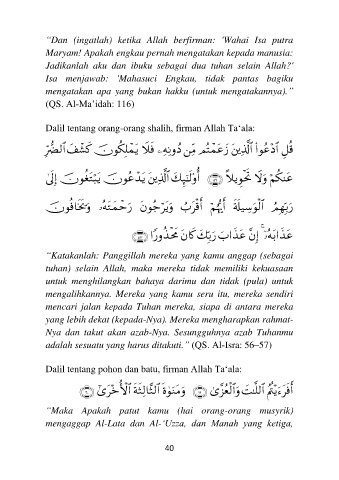 “Dan (ingatlah) ketika Allah berfirman: 'Wahai Isa putra
Maryam! Apakah engkau pernah mengatakan kepada manusia:
Jadikanlah aku dan ibuku sebagai dua tuhan selain Allah?'
Isa menjawab: 'Mahasuci Engkau, tidak pantas bagiku
mengatakan apa yang bukan hakku (untuk mengatakannya).”
(QS. Al-Ma’idah: 116)
Dalil tentang orang-orang shalih, firman Allah Ta‘ala:
قُلِ ٱدْعُوا۟ ٱلَّذِينَ زَعَمْتُم مِّن دُونِهِۦ فَلَا يَمْلِكُونَ كَشْفَ ٱلضُّرِّ
عَنكُمْ وَلَا تَحْوِيلًا ۝٥٦ أُو۟لَٰٓئِكَ ٱلَّذِينَ يَدْعُونَ يَبْتَغُونَ إِلَىٰ
رَبِّهِمُ ٱلْوَسِيلَةَ أَيُّهُمْ أَقْرَبُ وَيَرْجُونَ رَحْمَتَهُۥ وَيَخَافُونَ
عَذَابَهُۥٓ ۚ إِنَّ عَذَابَ رَبِّكَ كَانَ مَحْذُورًا ۝٥٧
“Katakanlah: Panggillah mereka yang kamu anggap (sebagai
tuhan) selain Allah, maka mereka tidak memiliki kekuasaan
untuk menghilangkan bahaya darimu dan tidak (pula) untuk
mengalihkannya. Mereka yang kamu seru itu, mereka sendiri
mencari jalan kepada Tuhan mereka, siapa di antara mereka
yang lebih dekat (kepada-Nya). Mereka mengharapkan rahmat-
Nya dan takut akan azab-Nya. Sesungguhnya azab Tuhanmu
adalah sesuatu yang harus ditakuti.” (QS. Al-Isra: 56–57)
Dalil tentang pohon dan batu, firman Allah Ta‘ala:
أَفَرَءَيْتُمُ ٱللَّٰتَ وَٱلْعُزَّىٰ ۝١٩ وَمَنَوٰةَ ٱلثَّالِثَةَ ٱلْأُخْرَىٰٓ ۝٢٠
“Maka Apakah patut kamu (hai orang-orang musyrik)
mengaggap Al-Lata dan Al-‘Uzza, dan Manah yang ketiga,
40